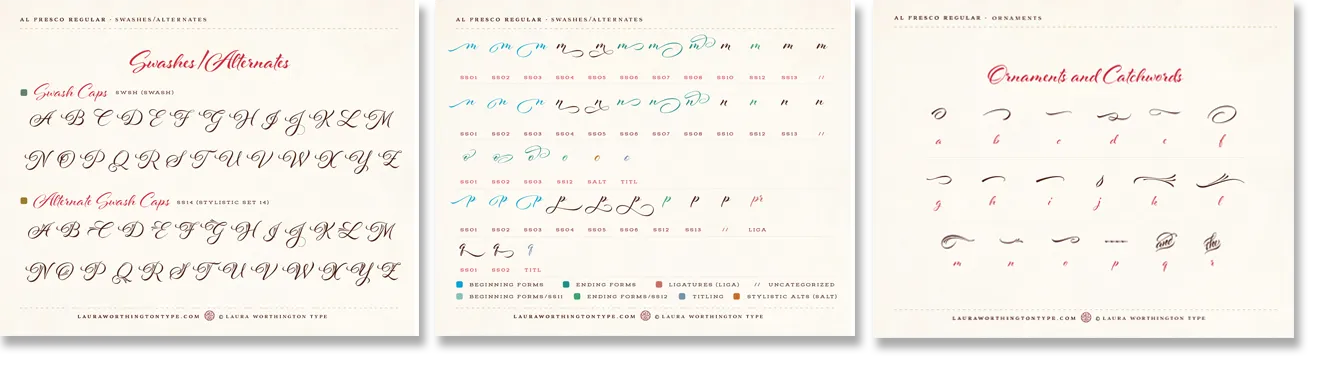 AL FRESCO REGULAR · SWASHES/ALTERNATES
Swashes/Alternates
Swash Caps SWSH (SWASH)
A B C D E F G H I J K L M
N O P Q R S T U V W X Y Z
Alternate Swash Caps SS14 (STYLISTIC SET 14)
A B C D E F G H I J K L M
N O P Q R S T U V W X Y Z
LAURAWORTHINGTONTYPE.COM © LAURA WORTHINGTON TYPE
AL FRESCO REGULAR · SWASHES/ALTERNATES
m m m m m m m m m m m m
SS01 SS02 SS03 SS04 SS05 SS06 SS07 SS08 SS10 SS12 SS13 //
n n n n n n n n n n n n
SS01 SS02 SS03 SS04 SS05 SS06 SS07 SS08 SS10 SS12 SS13 //
o o o o o o
SS01 SS02 SS03 SS12 SALT TITL
p p p p p p p p p pr
SS01 SS02 SS03 SS04 SS05 SS06 SS12 SS13 // LIGA
q q q
SS01 SS02 TITL
BEGINNING FORMS ENDING FORMS LIGATURES (LIGA) // UNCATEGORIZED
BEGINNING FORMS/SS11 ENDING FORMS/SS12 TITLING STYLISTIC ALTS (SALT)
LAURAWORTHINGTONTYPE.COM © LAURA WORTHINGTON TYPE
AL FRESCO REGULAR · ORNAMENTS
Ornaments and Catchwords
a b c d e f
g h i j k l
and the
m n o p q r
LAURAWORTHINGTONTYPE.COM © LAURA WORTHINGTON TYPE